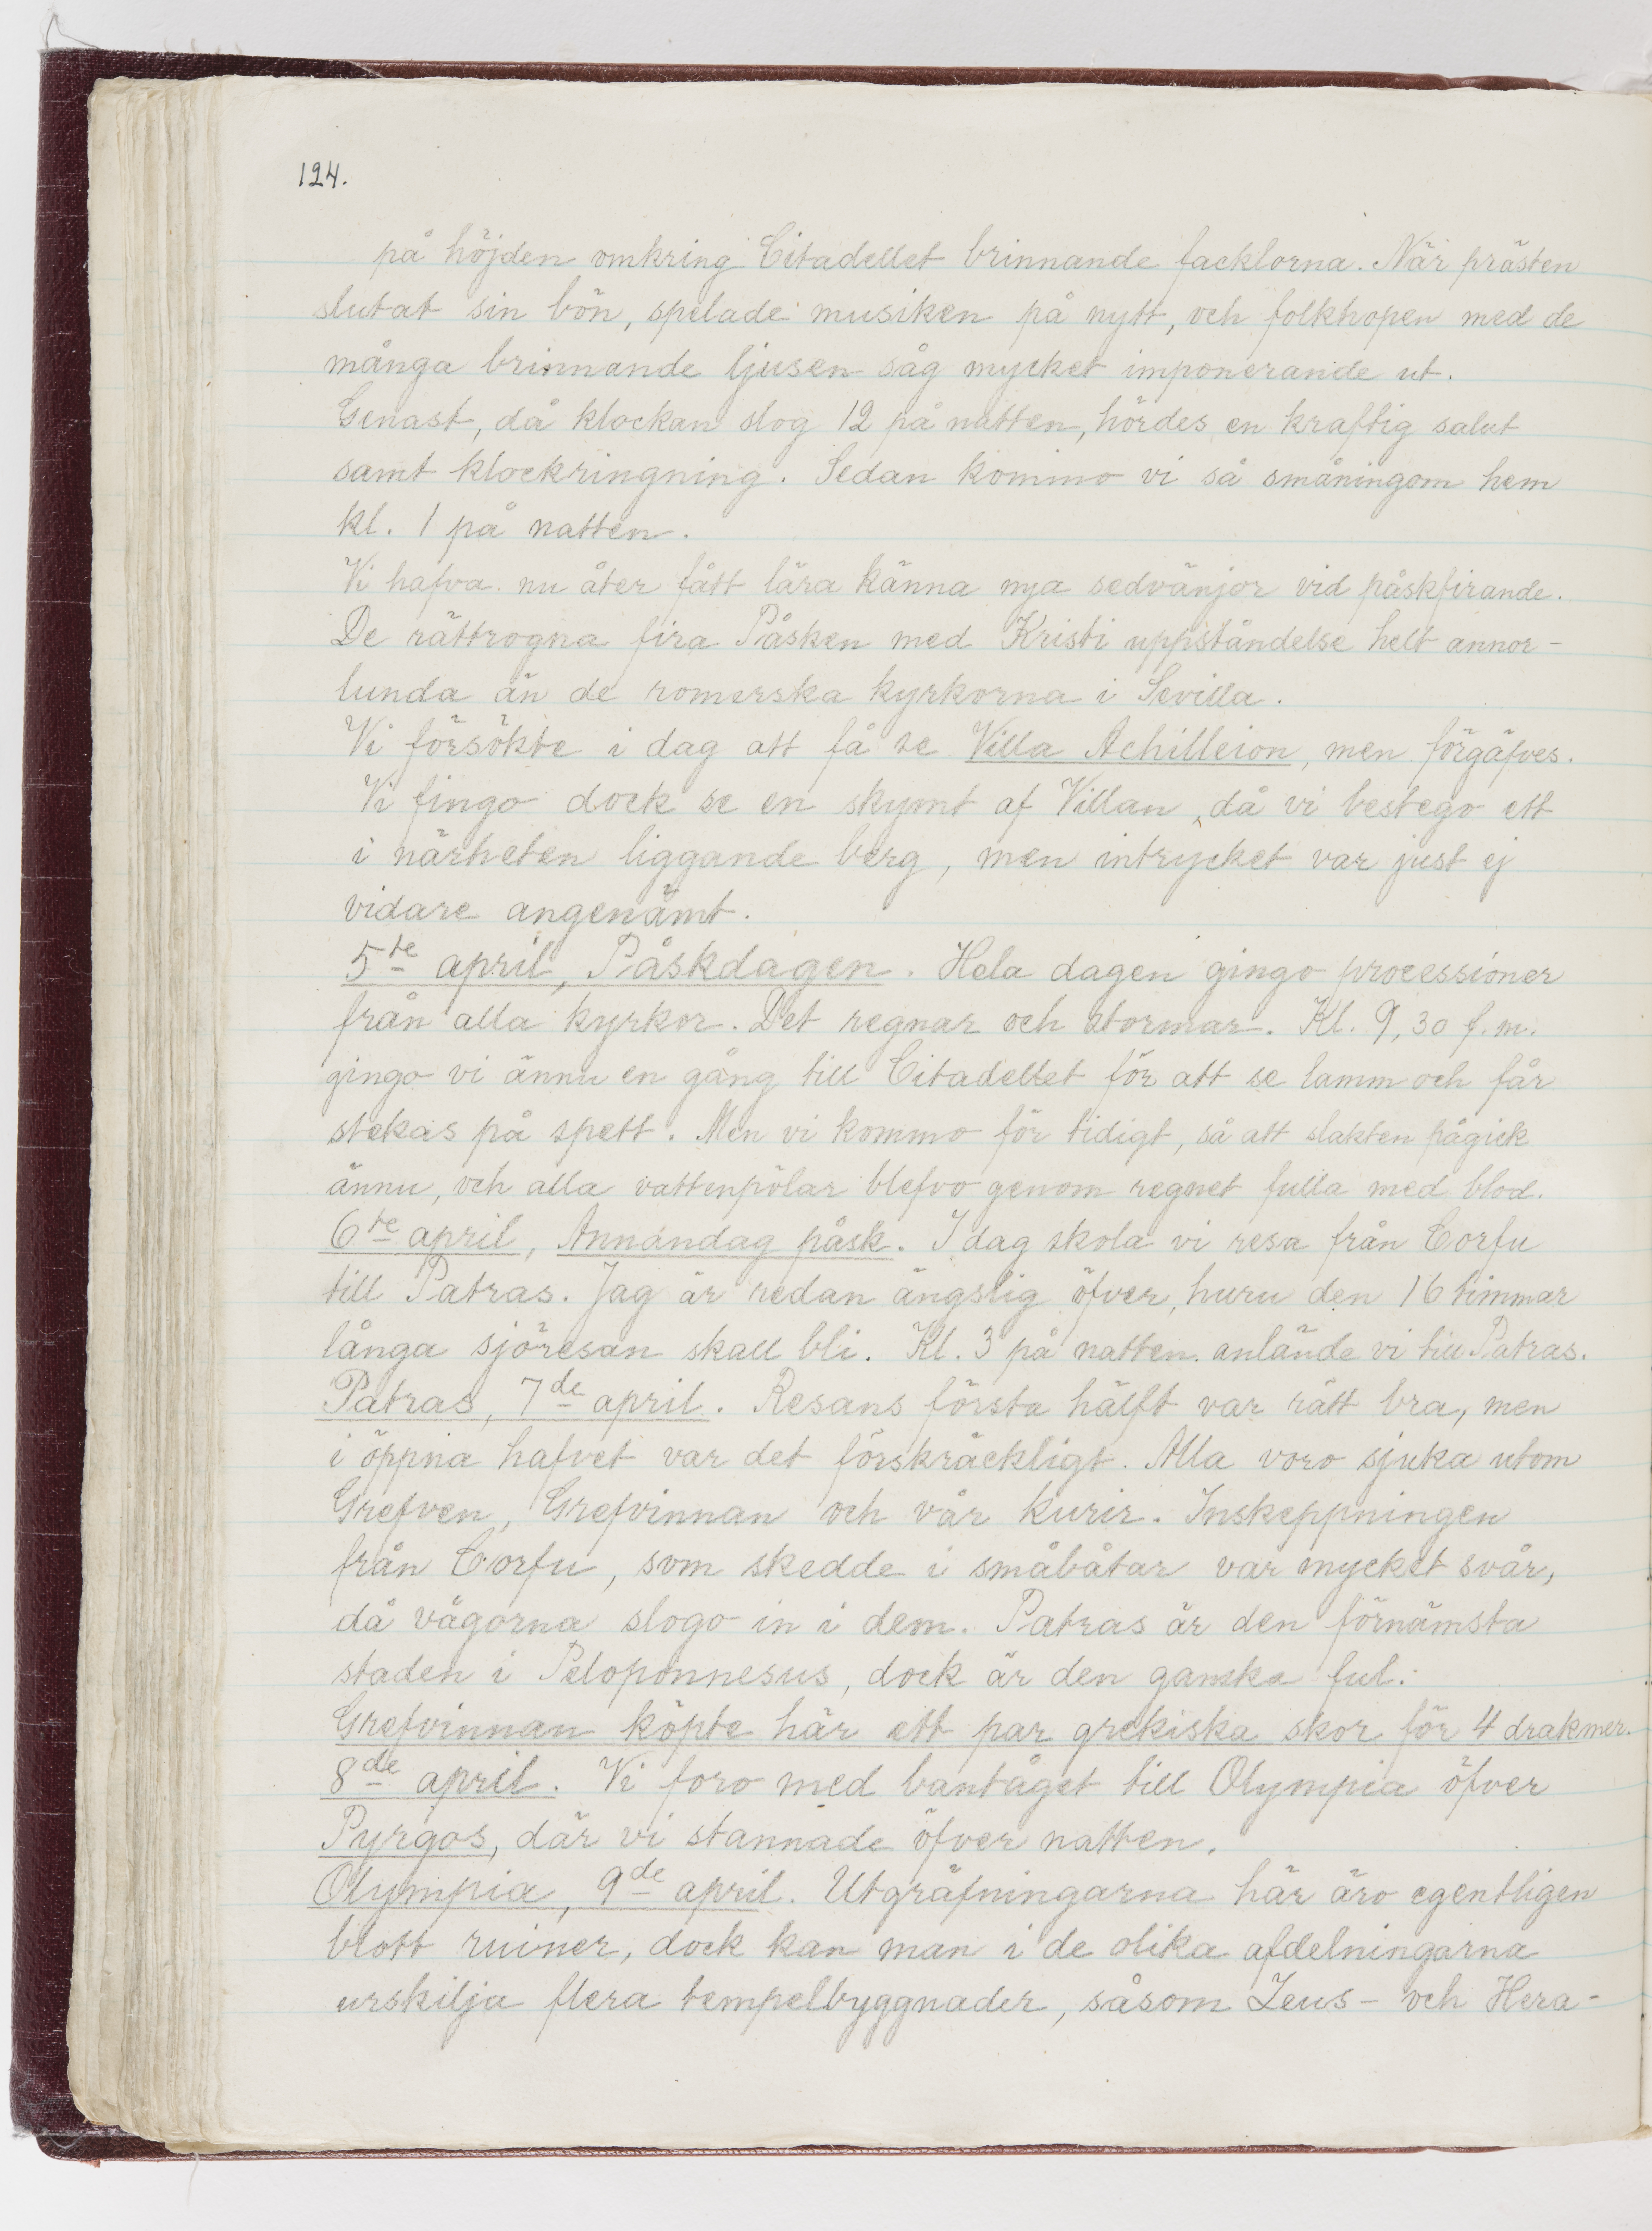 124.
på höjden omkring Citadellet brinnande facklorna. När prästen
slutat sin bön, spelade musiken på nytt, och folkhopen med de
många brinnande ljusen såg mycket imponerande ut.
Genast, då klockan slog 12 på natten, hördes en kraftig salut
samt klockringning. Sedan kommo vi så småningom hem
kl. 1 på natten.
Vi hafva nu åter fått lära känna nya sedvänjor vid påskfirande.
De rättrogna fira Påsken med Kristi uppståndelse helt annor-
lunda än de romerska kyrkorna i Sevilla.
Vi försökte i dag att få se Villa Achilleion, men förgäfves.
Vi fingo dock se en skymt af Villan, då vi bestego ett
i närheten liggande berg, men intrycket var just ej
vidare angenämt.
5te april, Påskdagen. Hela dagen gingo processioner
från alla kyrkor. Det regnar och stormar. Kl. 9,30 f.m.
gingo vi ännu en gång till Citadellet för att se lamm och får
stekas på spett. Men vi kommo för tidigt, så att slakten pågick
ännu, och alla vattenpölar blefvo genom regnet fulla med blod.
6te april, Annandag påsk. I dag skola vi resa från Corfu
till Patras. Jag är redan ängslig öfver, huru den 16 timmar
långa sjöresan skall bli. Kl. 3 på natten anlände vi till Patras.
Patras, 7de april. Resans första hälft var rätt bra, men
i öppna hafvet var det förskräckligt. Alla voro sjuka utom
Grefven, Grefvinnan och vår kurir. Inskeppningen
från Corfu, som skedde i småbåtar var mycket svår,
då vågorna slogo in i dem. Patras är den förnämsta
staden i Peloponnesus, dock är den ganska ful.
Grefvinnan köpte här ett par grekiska skor för 4 drakmer.
8de april. Vi foro med bantåget till Olympia öfver
Pyrgos, där vi stannade öfver natten.
Olympia, 9de april. Utgräfningarna här äro egentligen
blott ruiner, dock kan man i de olika afdelningarna
urskilja flera tempelbyggnader, såsom Zeus- och Hera-